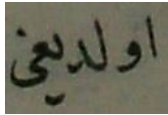 اولديغى